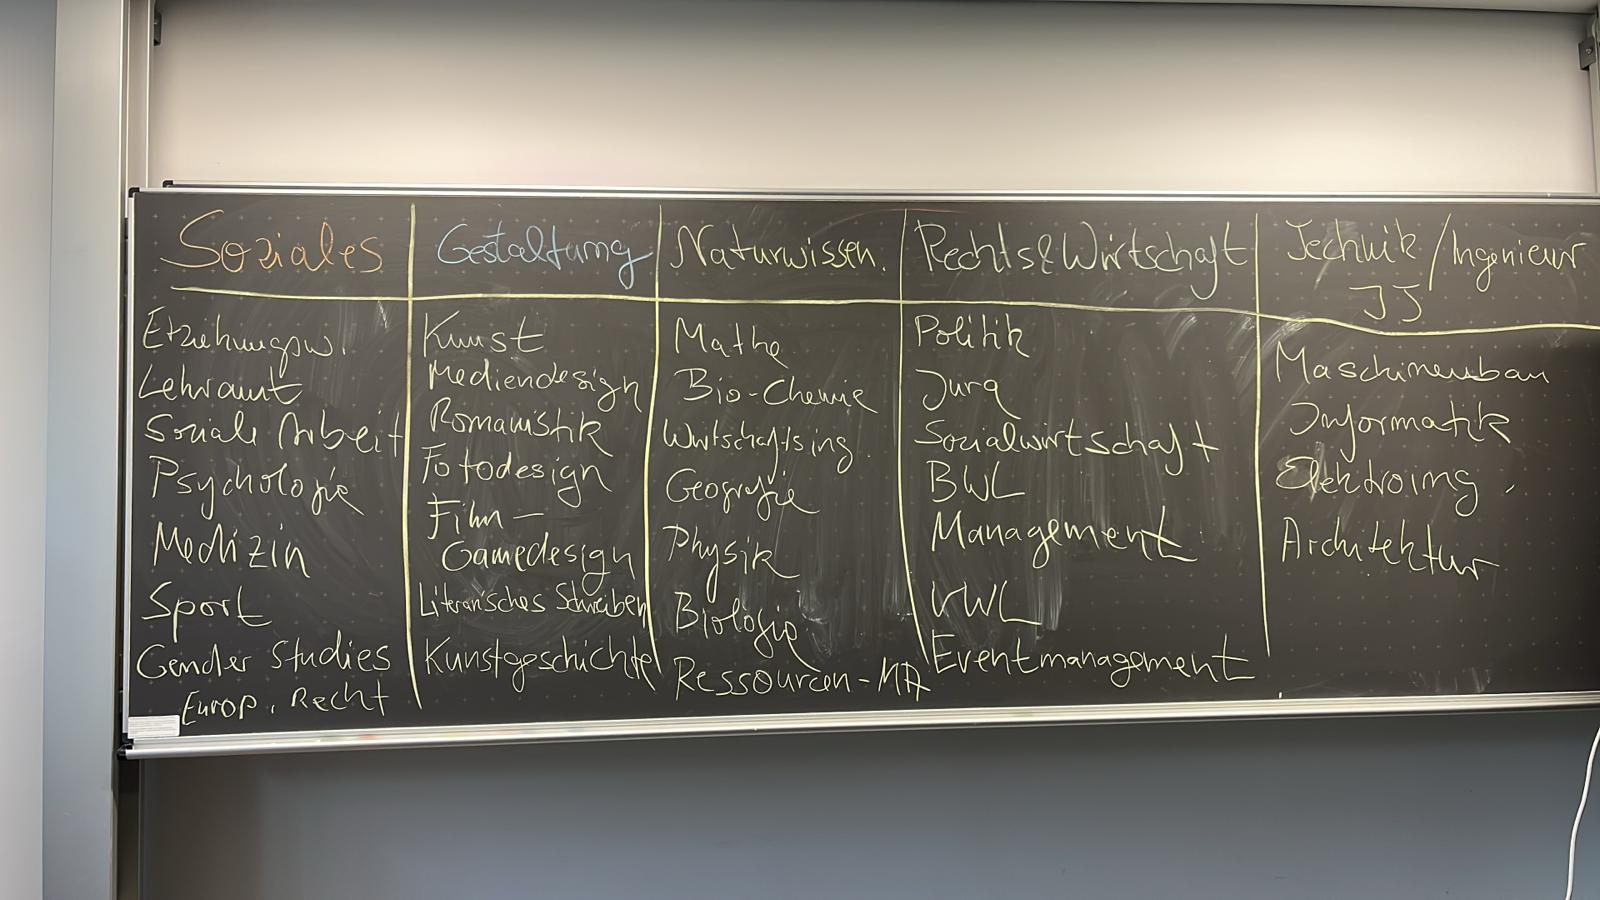 Soziales
Erziehungsw.
Lehramt
Soziale Arbeit
Psychologie
Medizin
Sport
Gender Studies
Europ. Recht
Gestaltung
Kunst
Mediendesign
Romanistik
Fotodesign
Film-
Gamedesign
Literarisches Schreiben
Kunstgeschichte
Naturwissen.
Mathe
Bio-Chemie
Wirtschaftsing.
Geografie
Physik
Biologie
Ressourcen-MA
Rechts&Wirtschaft
Politik
Jura
Sozialwirtschaft
BWL
Management
VWL
Eventmanagement
Technik/Ingenieur
Maschinenbau
Informatik
Elektroing.
Architektur